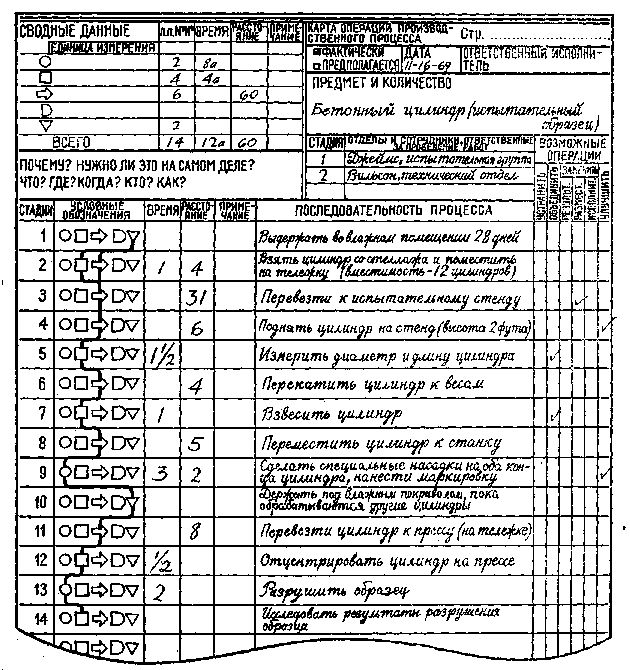 СВОДНЫЕ ДАННЫЕ
п.п. №№ ВРЕМЯ РАССТО-ЯНИЕ ПРИМЕ-ЧАНИЕ
ЕДИНИЦА ИЗМЕРЕНИЯ
2 8а
4 4а
6 60
2
ВСЕГО 14 12а 60
КАРТА ОПЕРАЦИЙ ПРОИЗВОД-
СТВЕННОГО ПРОЦЕССА
Стр.
ФАКТИЧЕСКИ
ПРЕДПОЛАГАЕТСЯ
ДАТА
11-16-69
ОТВЕТСТВЕННЫЙ ИСПОЛНИ-
ТЕЛЬ
ПРЕДМЕТ И КОЛИЧЕСТВО
Бетонный цилиндр (испытательный
образец)
СТАДИЯ ОТДЕЛЫ И СОТРУДНИКИ, ОТВЕТСТВЕННЫЕ
1 Джеймс, испытательная группа
2 Вильсон, технический отдел
ВОЗМОЖНЫЕ
ОПЕРАЦИИ
УСТРАНИТЬ
ОБЪЕДИНИТЬ
УЛУЧШИТЬ
ПОЧЕМУ? НУЖНО ЛИ ЭТО НА САМОМ ДЕЛЕ?
ЧТО? ГДЕ? КОГДА? КТО? КАК?
СТАДИЯ УСЛОВНЫЕ ОБОЗНАЧЕНИЯ ВРЕМЯ РАССТО-ЯНИЕ ПРИМЕ-ЧАНИЕ ПОСЛЕДОВАТЕЛЬНОСТЬ ПРОЦЕССА
1 Выдержать во влажном помещении 28 дней
2 1 4 Взять цилиндр со стеллажа и поместить
на тележку (вместимость-12 цилиндров)
3 31 Перевезти к испытательному стенду
4 6 Поднять цилиндр на стенд (высота 2 фута)
5 1 1/2 Измерить диаметр и длину цилиндра
6 4 Перекатить цилиндр к весам
7 1 Взвесить цилиндр
8 5 Переместить цилиндр к станку
9 3 2 Сделать специальные насадки на оба кон-
ца цилиндра, нанести маркировку
10 Держать под влажным покрывалом, пока
обрабатываются другие цилиндры
11 8 Перевезти цилиндр к прессу (на тележке)
12 1/2 Отцентрировать цилиндр на прессе
13 2 Разрушить образец
14 Исследовать результаты разрушения
образца